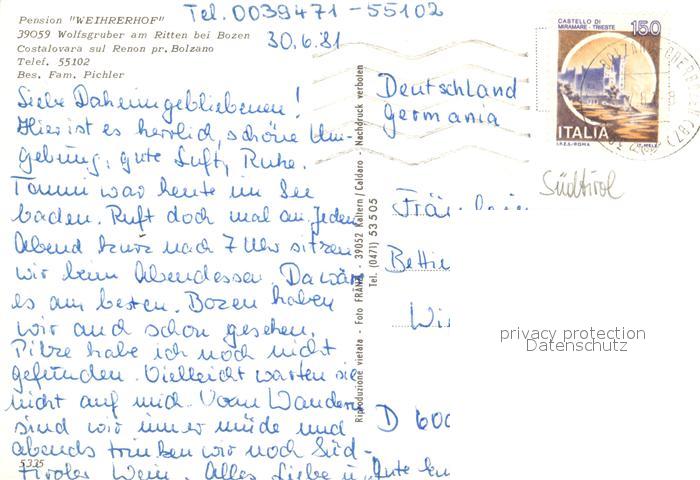 Tel. 0039471-55102
Pension "WEIHRERHOF"
39059 Wolfsgruber am Ritten bei Bozen
Costalovara sul Renon pr. Bolzano
Telef. 55102
Bes. Fam. Pichler
30.6.81
Liebe Daheimgebliebenen!
Hier ist es herrlich, schöne Um-
gebung, gute Luft, Ruhe.
war heute im See
baden. Ruft doch mal an. Jeden
Abend kurz nach 7 Uhr sitzen
wir beim Abendessen. Da wär
es am besten. Bozen haben
wir auch schon gesehen.
Pilze habe ich noch nicht
gefunden. Vielleicht warten sie
nicht auf mich. Vom Wandern
sind wir immer müde und
abends trinken wir noch Süd-
tiroler Wein. Alles Liebe u. Gute
5335
Riproduzione vietata - Foto FRÄNZL - 39052 Kaltern / Caldaro - Nachdruck verboten
Tel. (0471) 53505
CASTELLO DI
MIRAMARE - TRIESTE
150
ITALIA
I.P.Z.S. - ROMA
Deutschland
Germania
Südtirol
D 600
privacy protection
Datenschutz